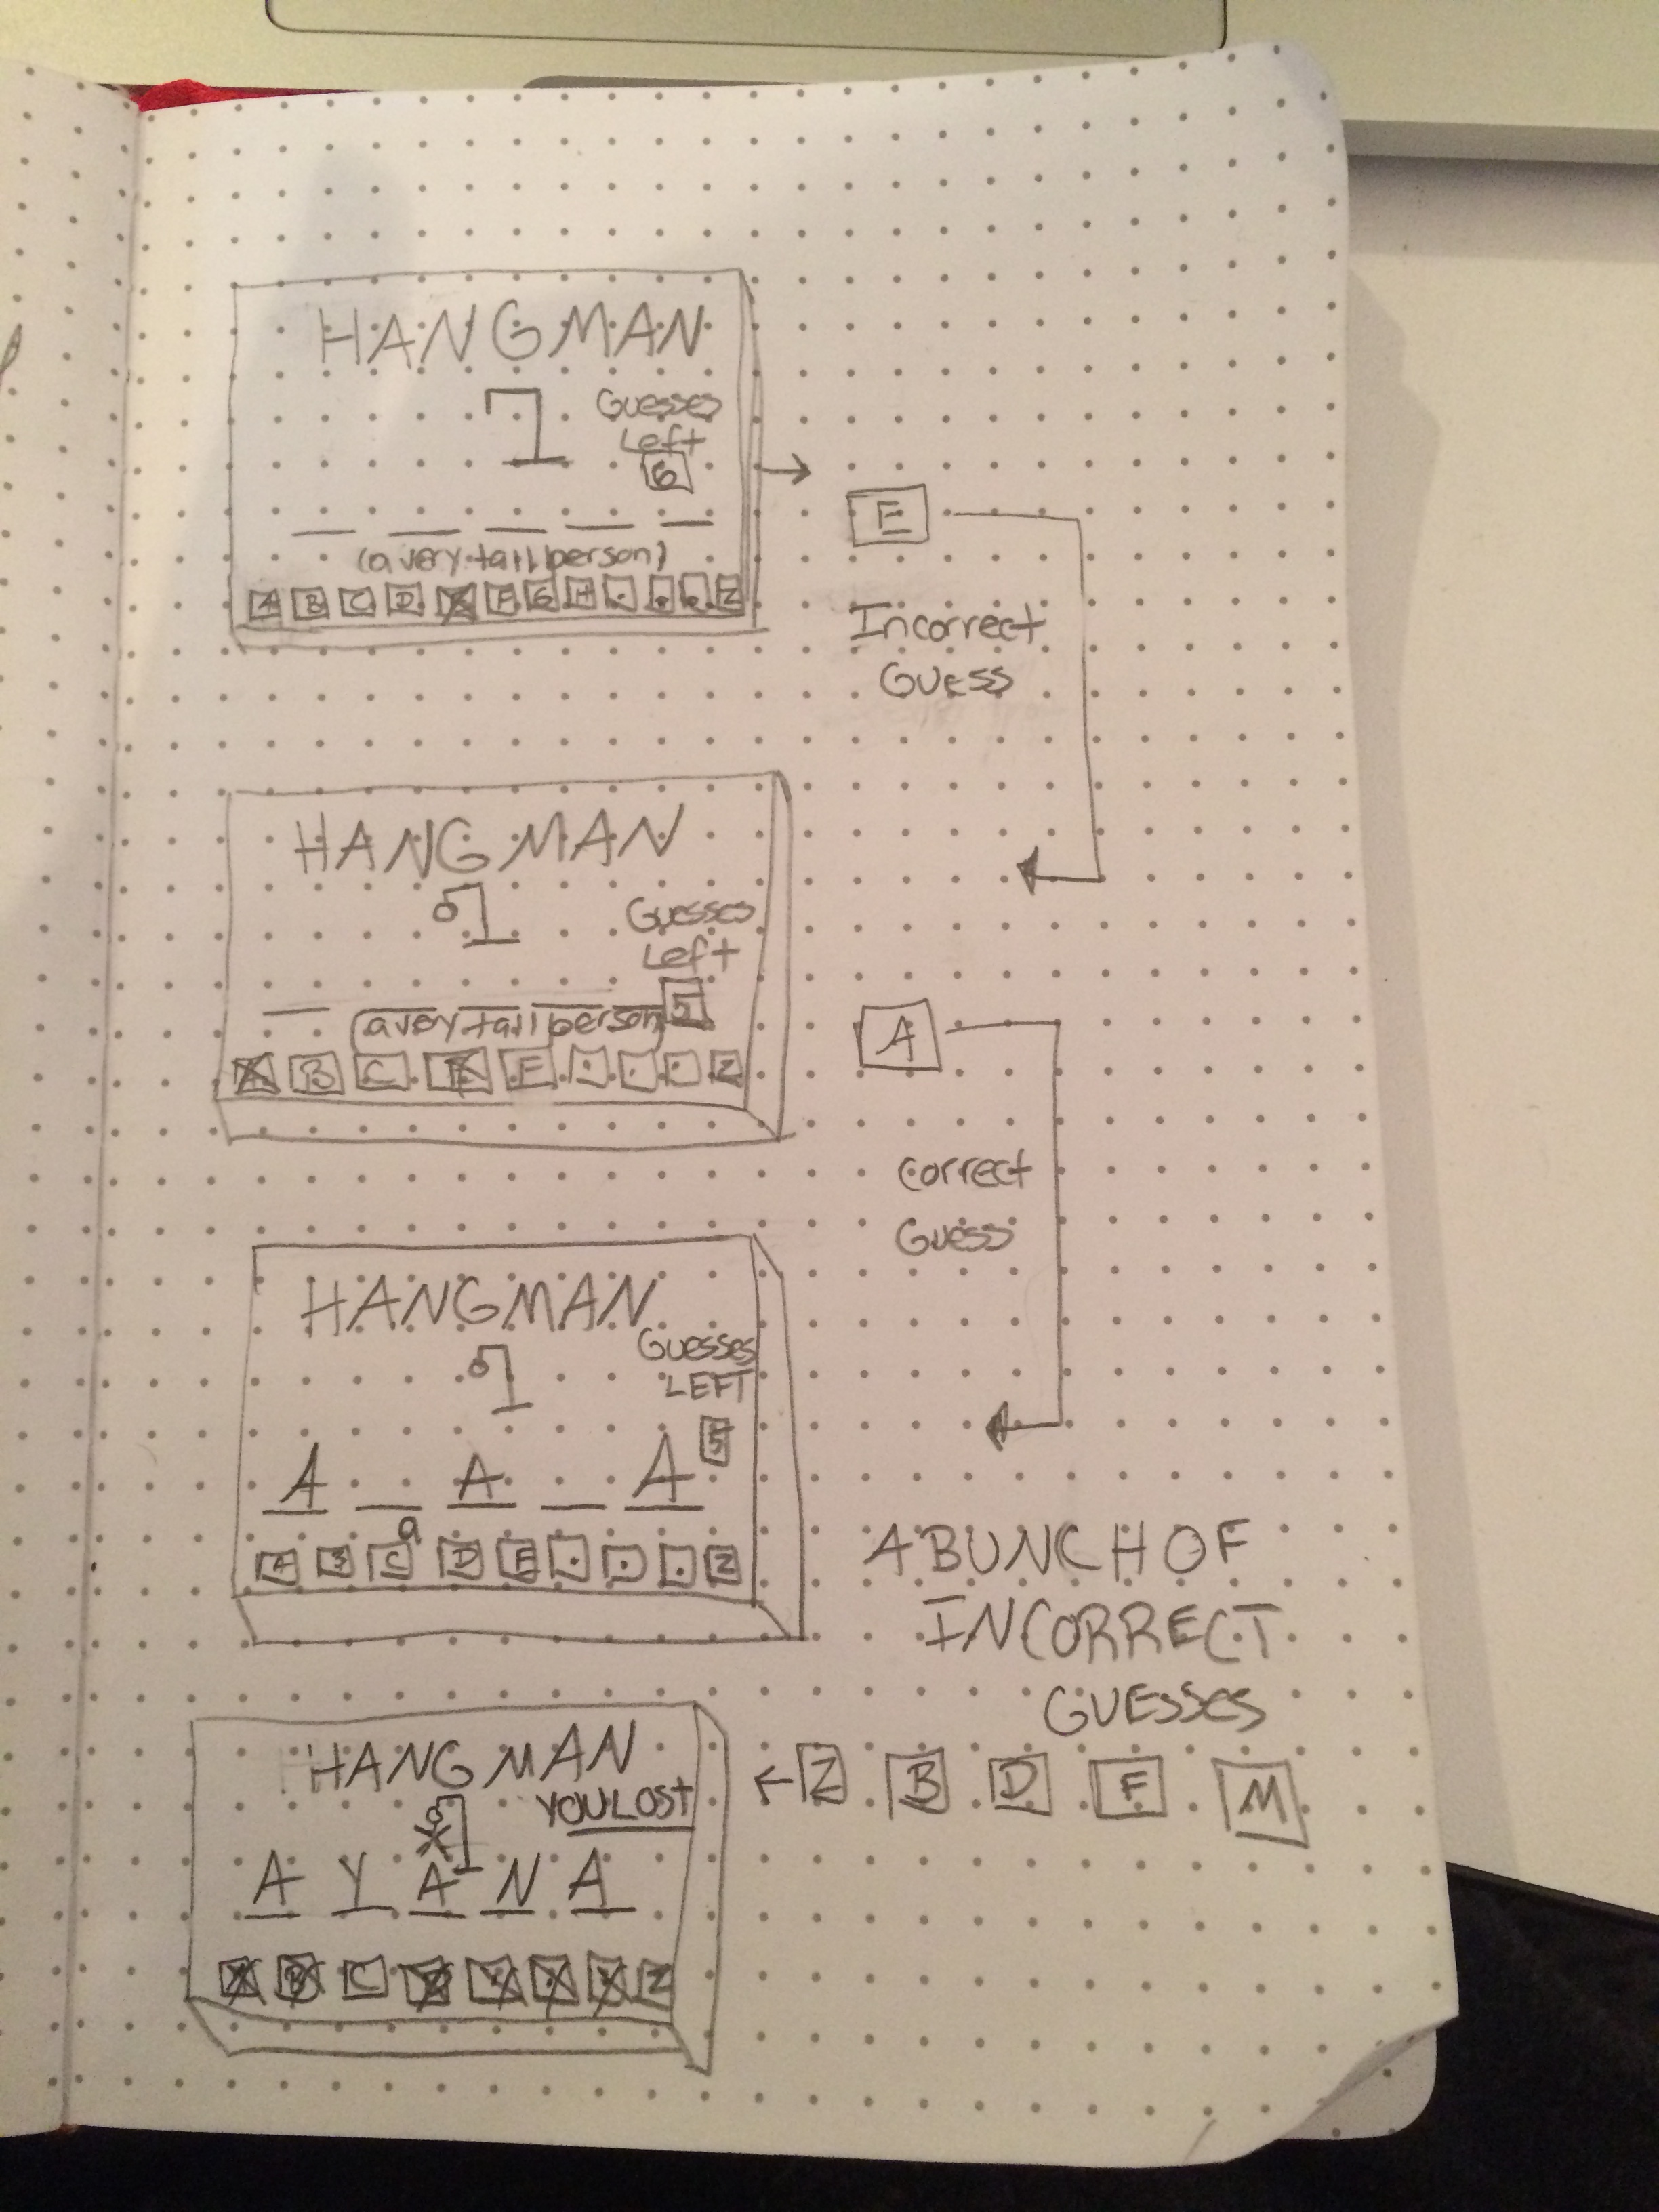 HANGMAN
Guesses
Left
6
(a very tall person)
A B C D E F G H Z
E
Incorrect
GUESS
HANGMAN
Guesses
Left
5
(a very tall person)
A B C E Z
A
Correct
Guess
HANGMAN
Guesses
LEFT
5
A _ A _ A
a
A B C D E Z
A BUNCH OF
INCORRECT
GUESSES
Z B D F M
HANGMAN
YOU LOST
A Y A N A
A B C Z